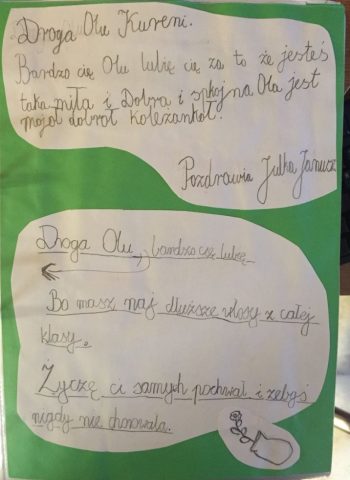 Droga Olu Kureni.
Bardzo cię Olu lubię cię za to że jesteś
taka miła i Dobra i spkojna Ola jest
mojoł dobroł koleżankoł.
Pozdrawia Julka Janusz
Droga Olu bardzo cię lubię
Bo masz naj dłuższe włosy z całej
klasy.
Życzę ci samych pochwał i żebyś
nigdy nie chorowała.